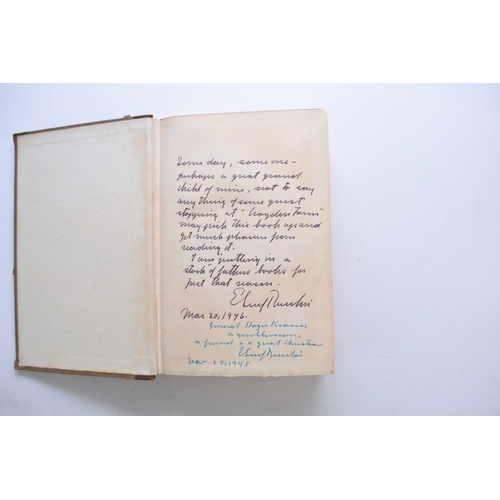 Some day, some one—
perhaps a great grand
child of mine, not to say
anything of some guest
stopping at "Croydon Farm"
may pick this book up and
get much pleasure from
reading it.
I am putting in a
stock of fathers books for
just that reason.
Mar 20, 1946.
General Hayes
a gentleman,
a friend & a great Christian
Nov. 29, 1948